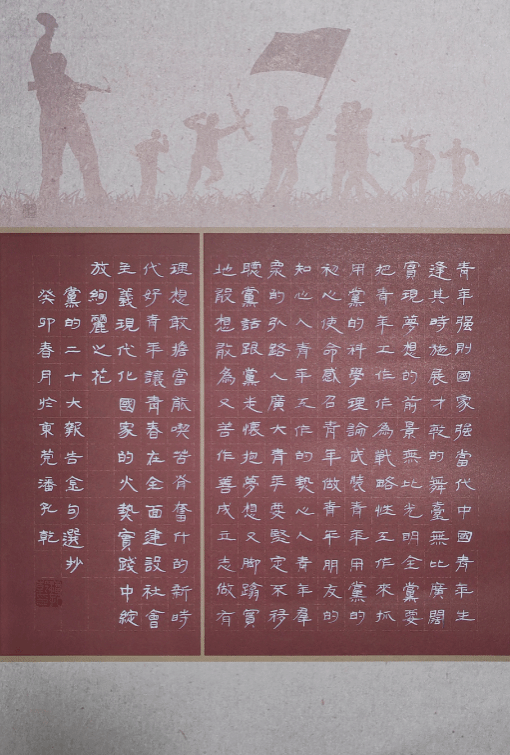 青年强則國家强當代中國青年生
逢其時施展才幹的舞臺無比廣闊
實現夢想的前景無比光明全黨要
把青年工作作為戰略性工作來抓
用黨的科學理論武裝青年用黨的
初心使命感召青年做青年朋友的
知心人青年工作的熱心人青年羣
衆的引路人廣大青年要堅定不移
聽黨話跟黨走懷抱夢想又脚踏實
地敢想敢為又善作善成立志做有
理想敢擔當能喫苦肯奮鬥的新時
代好青年讓青春在全面建設社會
主義現代化國家的火熱實踐中綻
放絢麗之花
黨的二十大報告金句選抄
癸卯春月於東莞潘孔乾